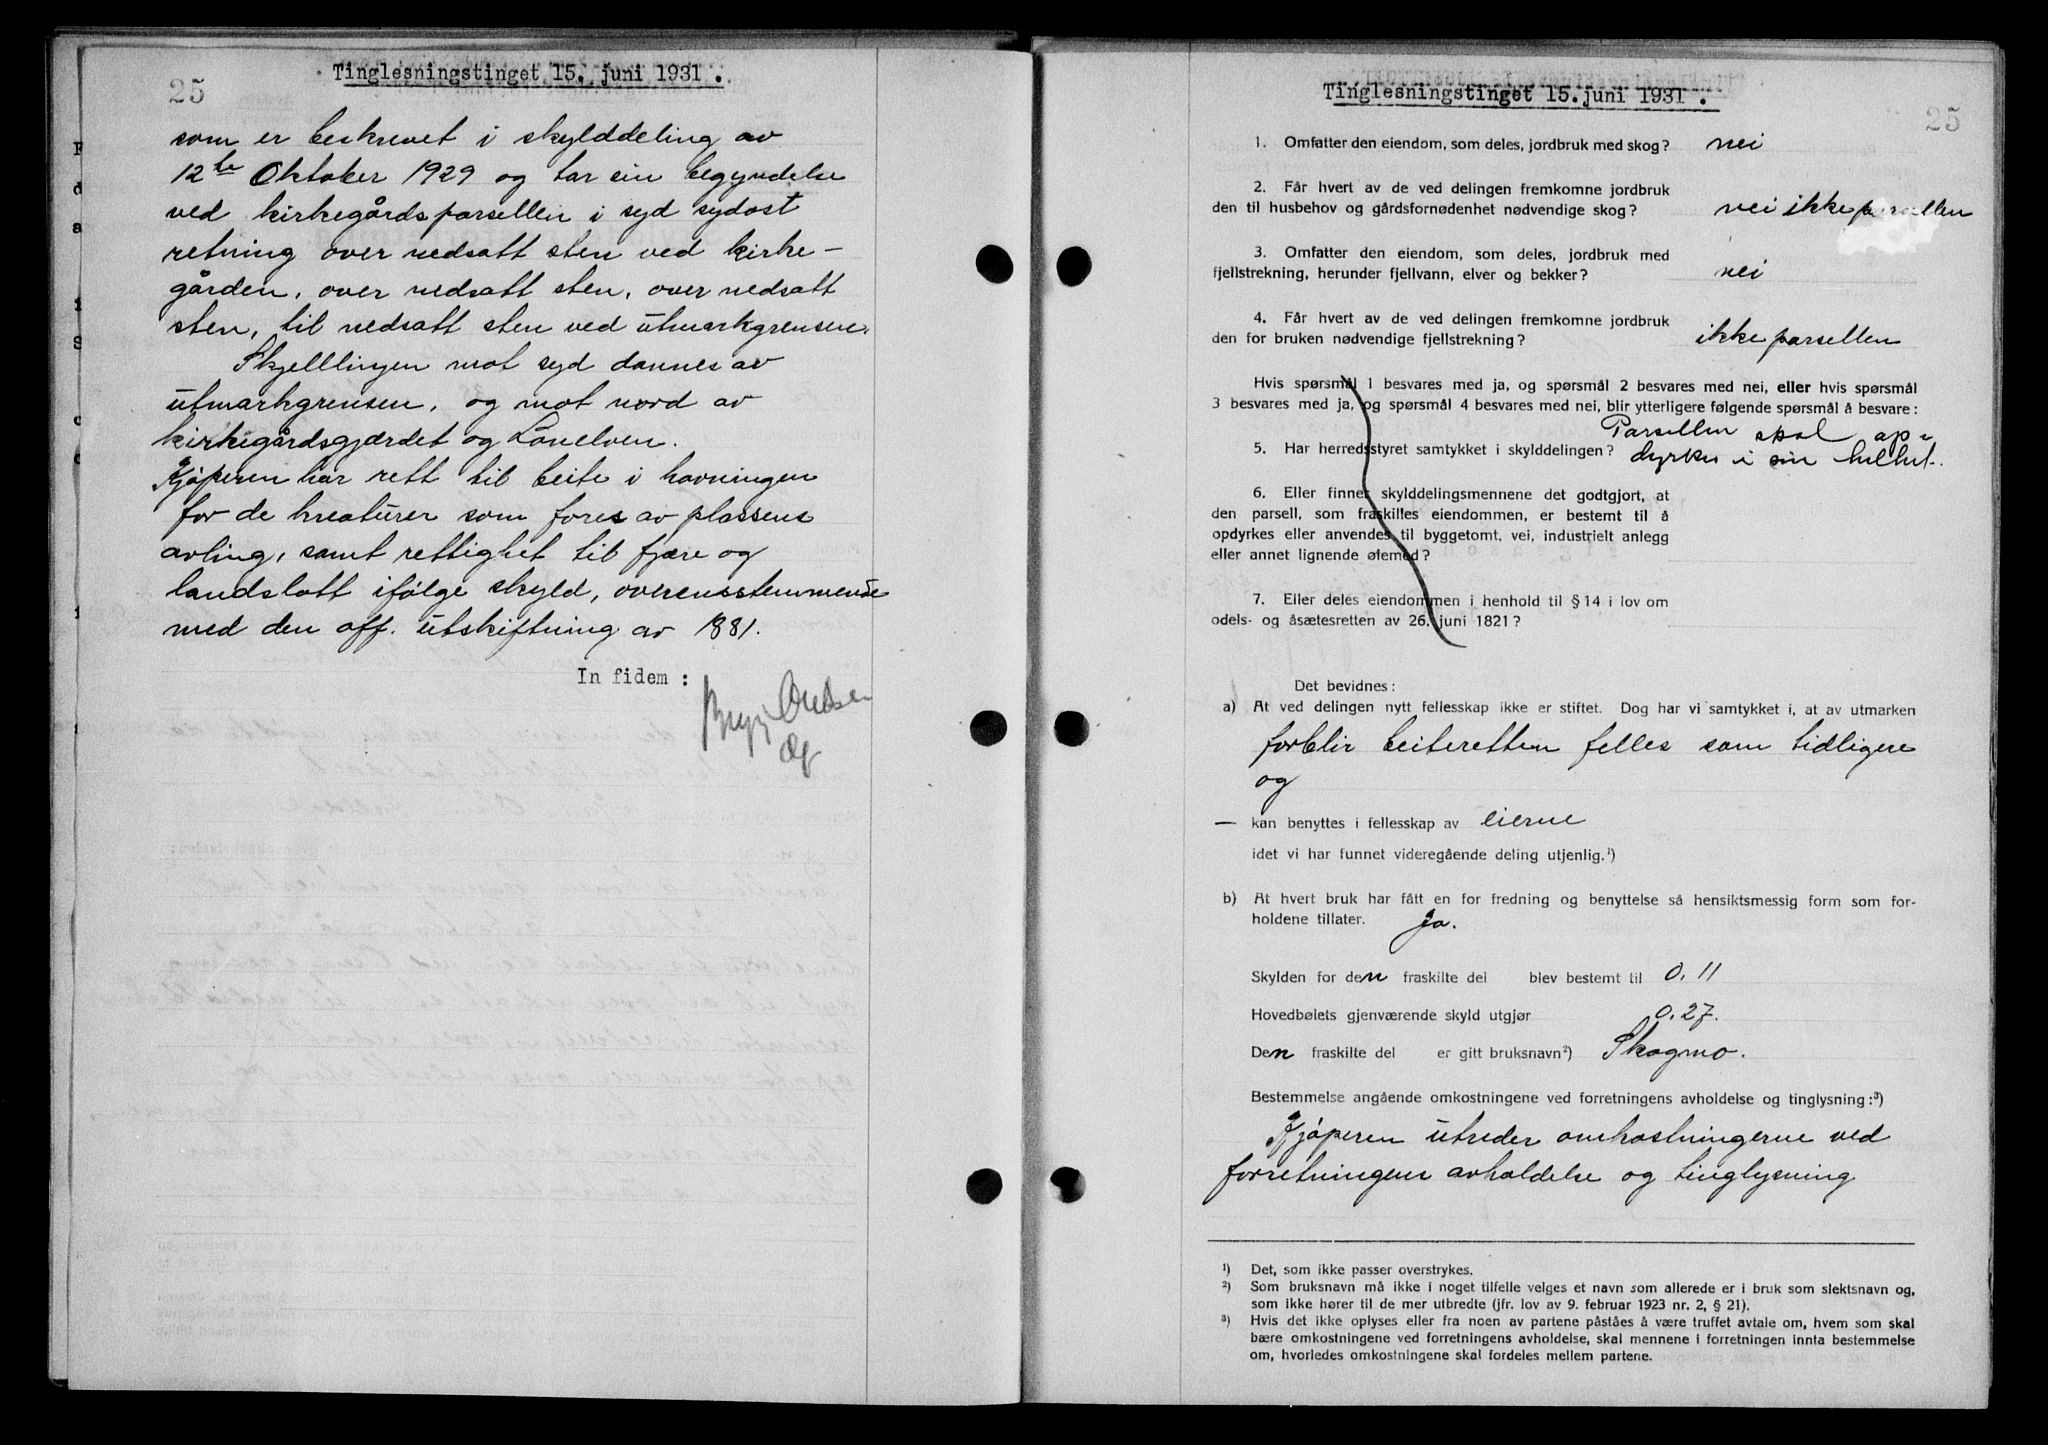 25
Tinglesningstinget 15. juni 1931.
som er beskrevet i skylddeling av
12te Oktober 1929 og tar sin begyndelse
ved kirkegårdsparsellen i syd sydost
retning over nedsatt sten ved kirke-
gården, over nedsatt sten, over nedsatt
sten, til nedsatt sten ved utmarkgrensen.
Skjelllingen mot syd dannes av
utmarkgrensen, og mot nord av
kirkegårdsgjærdet og Lonelven.
Kjøperen har rett til beite i havningen
for de kreaturer som fores av plassens
avling, samt rettighet til fjære og
landslott ifølge skyld, overensstemmende
med den off. utskiftning av 1881.
In fidem :
Tinglesningstinget 15. juni 1931.
25
1. Omfatter den eiendom, som deles, jordbruk med skog? nei
2. Får hvert av de ved delingen fremkomne jordbruk
den til husbehov og gårdsfornødenhet nødvendige skog? nei ikke parsellen
3. Omfatter den eiendom, som deles, jordbruk med
fjellstrekning, herunder fjellvann, elver og bekker? nei
4. Får hvert av de ved delingen fremkomne jordbruk
den for bruken nødvendige fjellstrekning? ikke parsellen
Hvis spørsmål 1 besvares med ja, og spørsmål 2 besvares med nei, eller hvis spørsmål
3 besvares med ja, og spørsmål 4 besvares med nei, blir ytterligere følgende spørsmål å besvare:
Parsellen skal op-
5. Har herredsstyret samtykket i skylddelingen? dyrkes i sin helhet.
6. Eller finnes skylddelingsmennene det godtgjort, at
den parsell, som fraskilles eiendommen, er bestemt til å
opdyrkes eller anvendes til byggetomt, vei, industrielt anlegg
eller annet lignende øiemed?
7. Eller deles eiendommen i henhold til § 14 i lov om
odels- og åsætesretten av 26. juni 1821?
Det bevidnes:
a) At ved delingen nytt fellesskap ikke er stiftet. Dog har vi samtykket i, at av utmarken
forblir beiteretten felles som tidligere
og
— kan benyttes i fellesskap av eierne
idet vi har funnet videregående deling utjenlig.¹)
b) At hvert bruk har fått en for fredning og benyttelse så hensiktsmessig form som for-
holdene tillater. Ja.
Skylden for den fraskilte del blev bestemt til 0.11
Hovedbølets gjenværende skyld utgjør 0.27.
Den fraskilte del er gitt bruksnavn²) Skogmo.
Bestemmelse angående omkostningene ved forretningens avholdelse og tinglysning:³)
Kjøperen utreder omkostningerne ved
forretningens avholdelse og tinglysning
¹) Det, som ikke passer overstrykes.
²) Som bruksnavn må ikke i noget tilfelle velges et navn som allerede er i bruk som slektsnavn og,
som ikke hører til de mer utbredte (jfr. lov av 9. februar 1923 nr. 2, § 21).
³) Hvis det ikke oplyses eller fra noen av partene påståes å være truffet avtale om, hvem som skal
bære omkostningene ved forretningens avholdelse, skal mennene i forretningen innta bestemmelse
om, hvorledes omkostningene skal fordeles mellem partene.